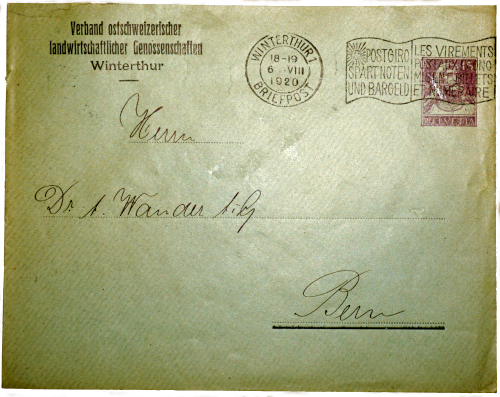 Verband ostschweizerischer
landwirtschaftlicher Genossenschaften
Winterthur
WINTERTHUR 1
18-19
6. VIII
1920
BRIEFPOST
POSTGIRO
SPART NOTEN
UND BARGELD
LES VIREMENTS
POSTAUX
ET NUMERAIRE
HELVETIA
Herrn
Dr. A. Wander A.G
Bern